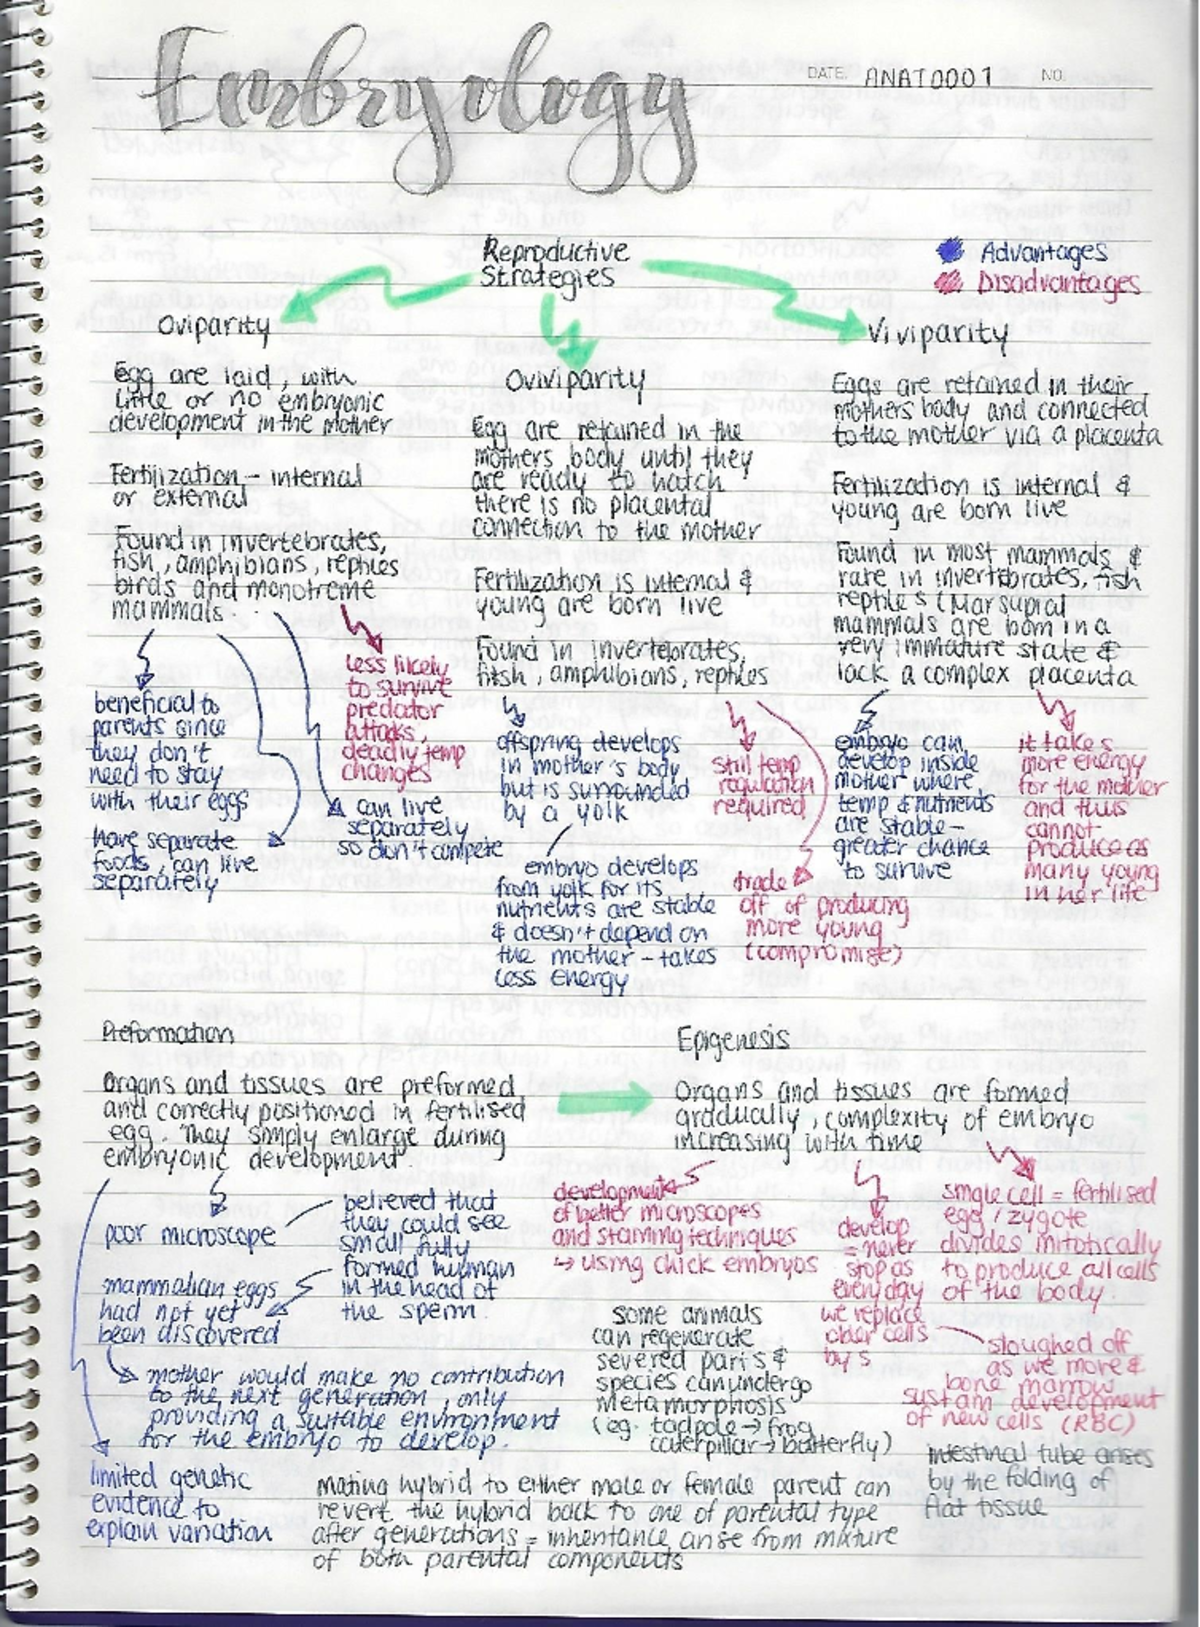 Embryology
DATE. ANAT0001 NO.
Reproductive
Strategies
Advantages
Disadvantages
Oviparity
Egg are laid, with
little or no embryonic
development in the mother
Fertilization - internal
or external
Found in invertebrates,
fish, amphibians, reptiles
birds and monotreme
mammals
beneficial to
parents since
they don't
need to stay
with their eggs
have separate
foods, can live
separately
can live
separately
so don't compete
less likely
to survive
predator
attacks,
deadly temp
changes
Oviviparity
Egg are retained in the
mothers body until they
are ready to hatch
there is no placental
connection to the mother
Fertilization is internal &
young are born live
Found in invertebrates,
fish, amphibians, reptiles
offspring develops
in mother's body
but is surrounded
by a yolk
embryo develops
from yolk for its
nutrients are stable
& doesn't depend on
the mother - takes
less energy
still temp
regulation
required
trade
off of producing
more young
(compromise)
Viviparity
Eggs are retained in their
mothers body and connected
to the mother via a placenta
Fertilization is internal &
young are born live
Found in most mammals &
rare in invertebrates, fish
reptiles (Marsupial
mammals are born in a
very immature state &
lack a complex placenta
embryo can
develop inside
mother where
temp & nutrients
are stable -
greater chance
to survive
it takes
more energy
for the mother
and thus
cannot
produce as
many young
in her life
Preformation
Organs and tissues are preformed
and correctly positioned in fertilised
egg. They simply enlarge during
embryonic development.
poor microscope
believed that
they could see
small fully
formed human
in the head of
the sperm.
mammalian eggs
had not yet
been discovered
mother would make no contribution
to the next generation, only
providing a suitable environment
for the embryo to develop.
limited genetic
evidence to
explain variation
Epigenesis
Organs and tissues are formed
gradually, complexity of embryo
increasing with time
development
of better microscopes
and staining techniques
↳ using chick embryos
develop
= never
stop as
everyday
we replace
older cells
by s
single cell = fertilised
egg / zygote
divides mitotically
to produce all cells
of the body.
sloughed off
as we more &
bone marrow
sustain development
of new cells (RBC)
some animals
can regenerate
severed parts &
species can undergo
metamorphosis
(eg. tadpole → frog
caterpillar → butterfly)
intestinal tube arises
by the folding of
flat tissue
Mating hybrid to either male or female parent can
revert the hybrid back to one of parental type
after generations = inheritance arise from mixture
of both parental components